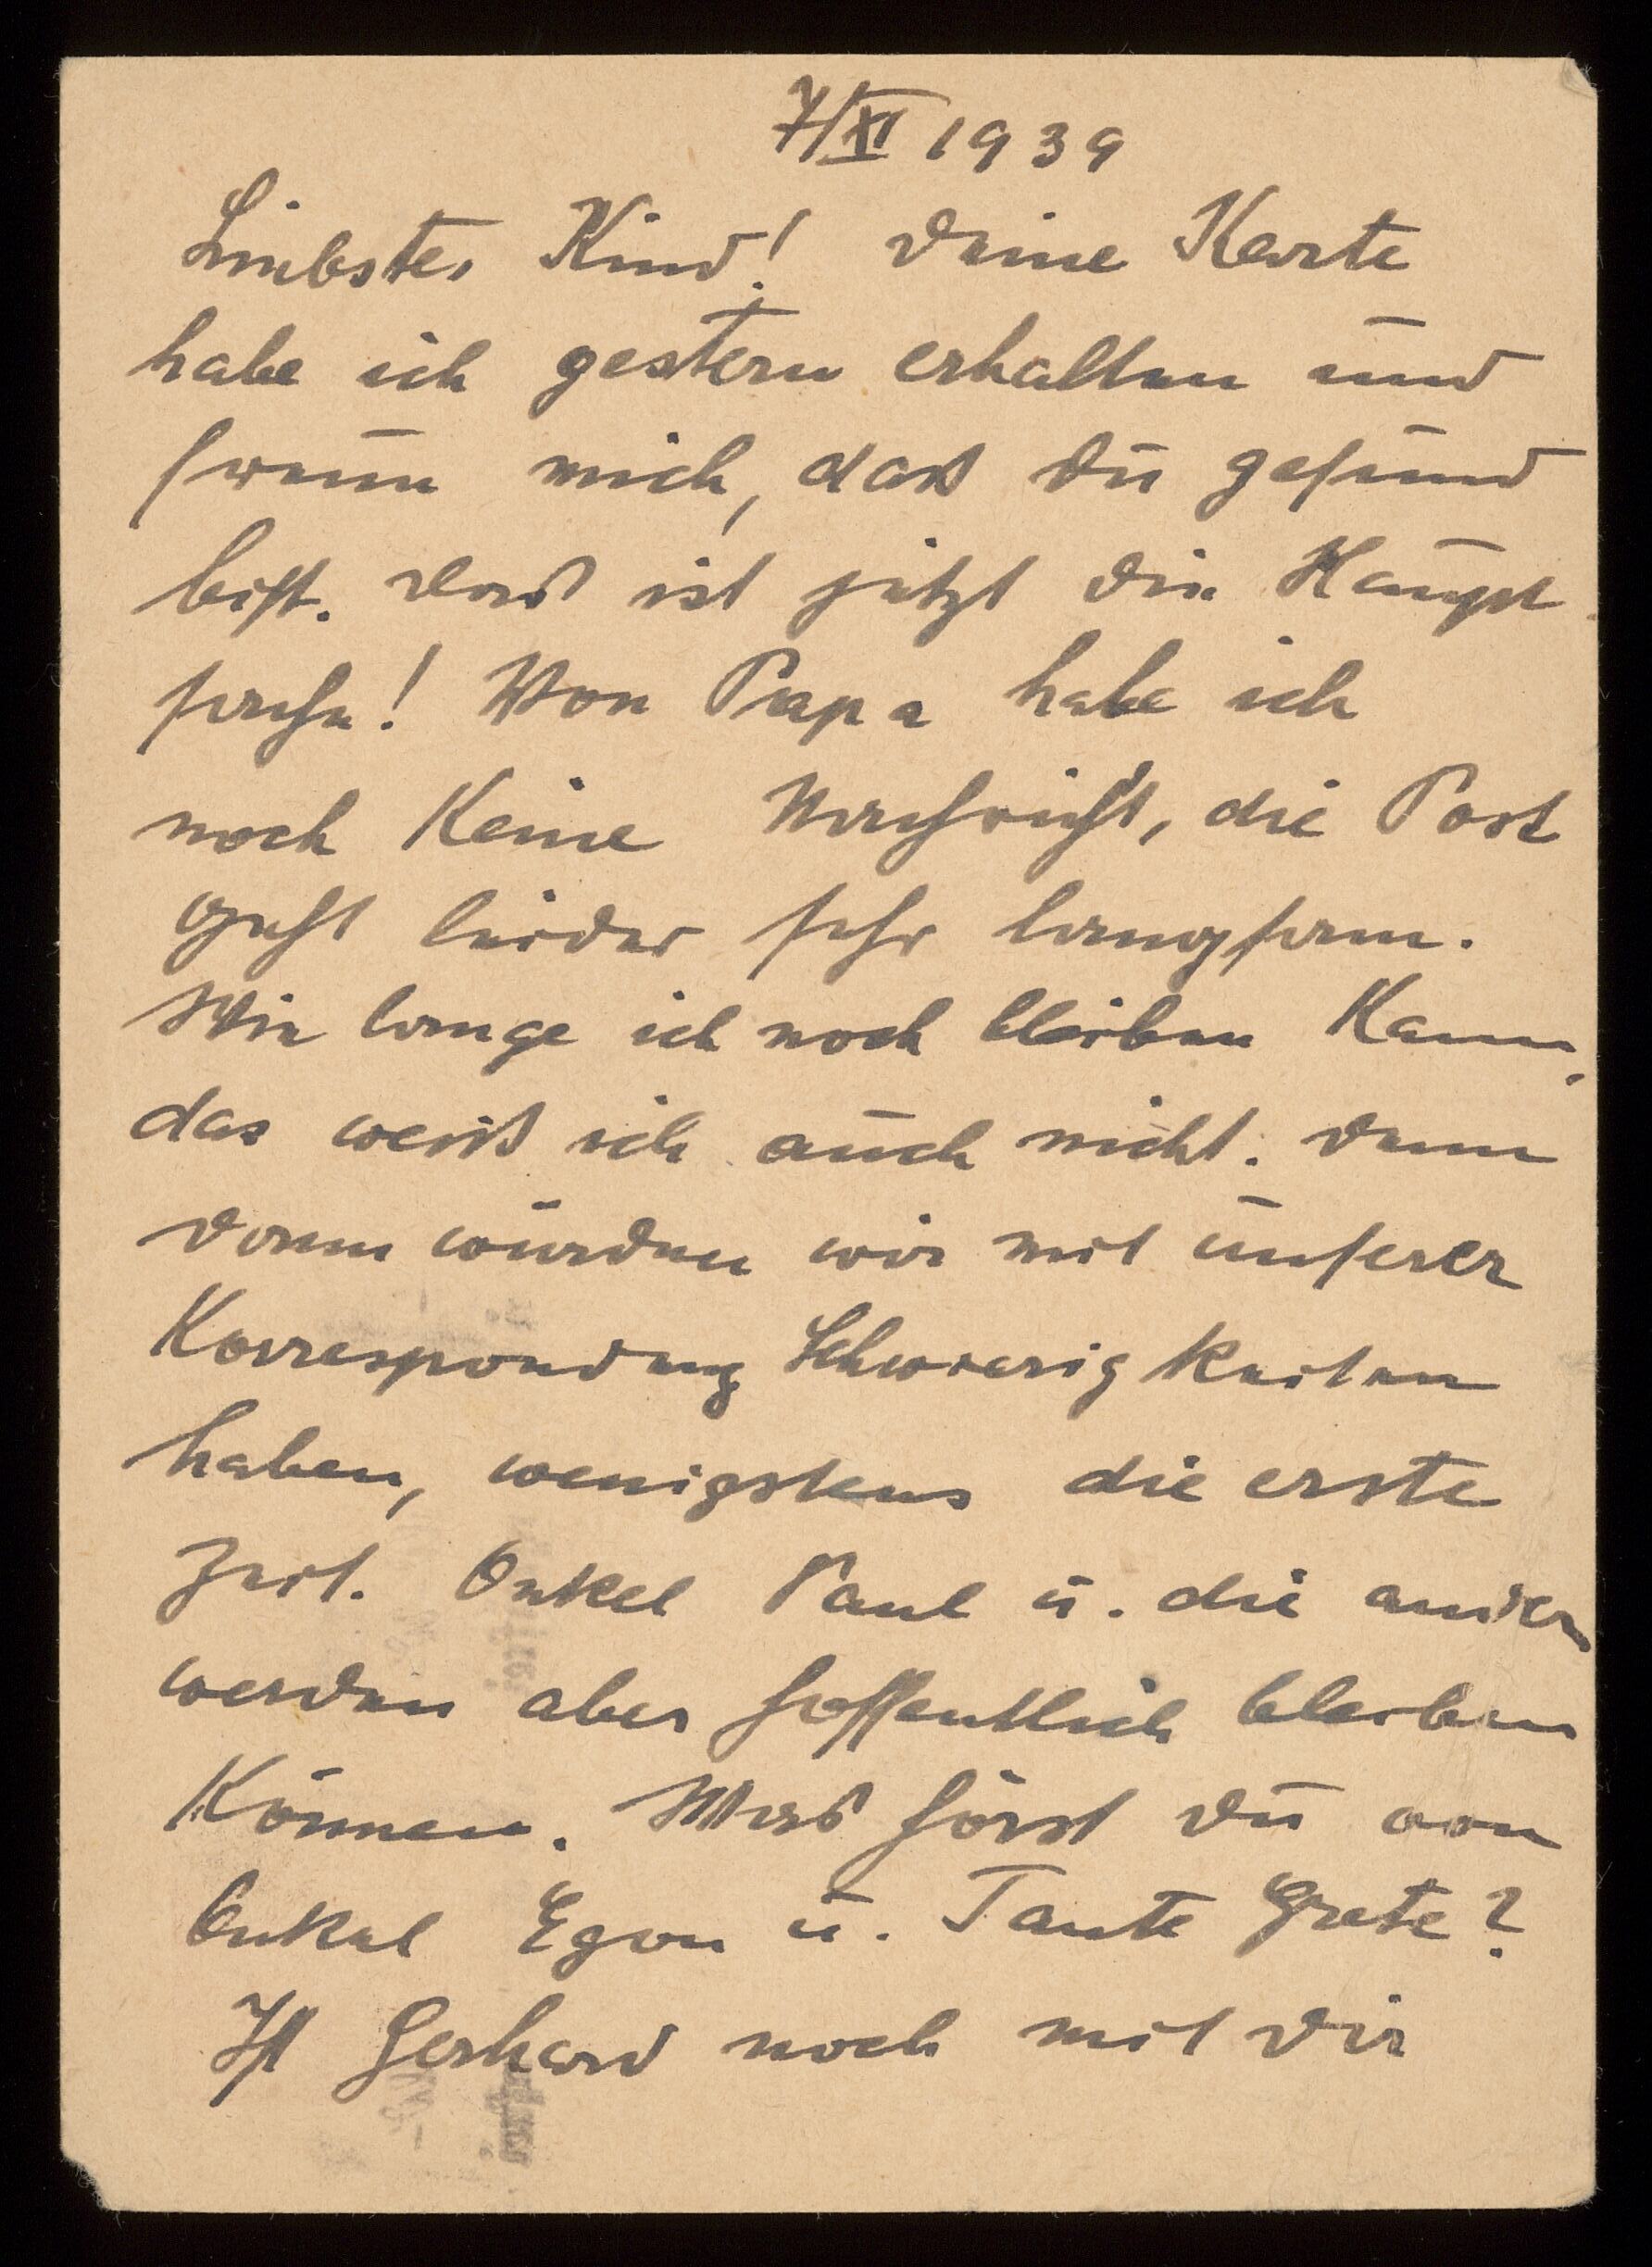 7/XI 1939
Liebstes Kind! Deine Karte
habe ich gestern erhalten und
freue mich, daß Du gesund
bist. Das ist jetzt die Haupt
sache! Von Papa habe ich
noch keine Nachricht, die Post
geht leider sehr langsam.
Wie lange ich noch bleiben kann,
das weiß ich auch nicht. Denn
dann würden wir mit unserer
Korrespondenz Schwierigkeiten
haben, wenigstens die erste
Zeit. Onkel Paul u. die andern
werden aber hoffentlich bleiben
können. Was hörst Du von
Onkel Egon u. Tante Grete?
Ist Gerhard noch mit Dir